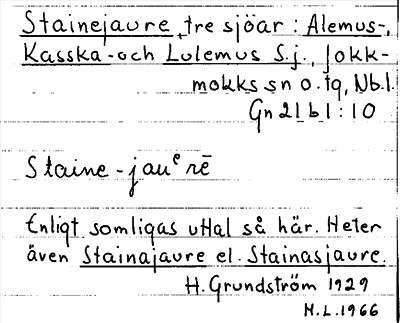 Stainejaure, tre sjöar: Alemus-,
Kasska- och Lulemus S.j., Jokk-
mokks sn o. tq, Nb.l.
Gn 21 b 1:10
Staine-jauᵉrē
Enligt somligas uttal så här. Heter
även Stainajaure el. Stainasjaure.
H. Grundström 1929
M.L. 1966